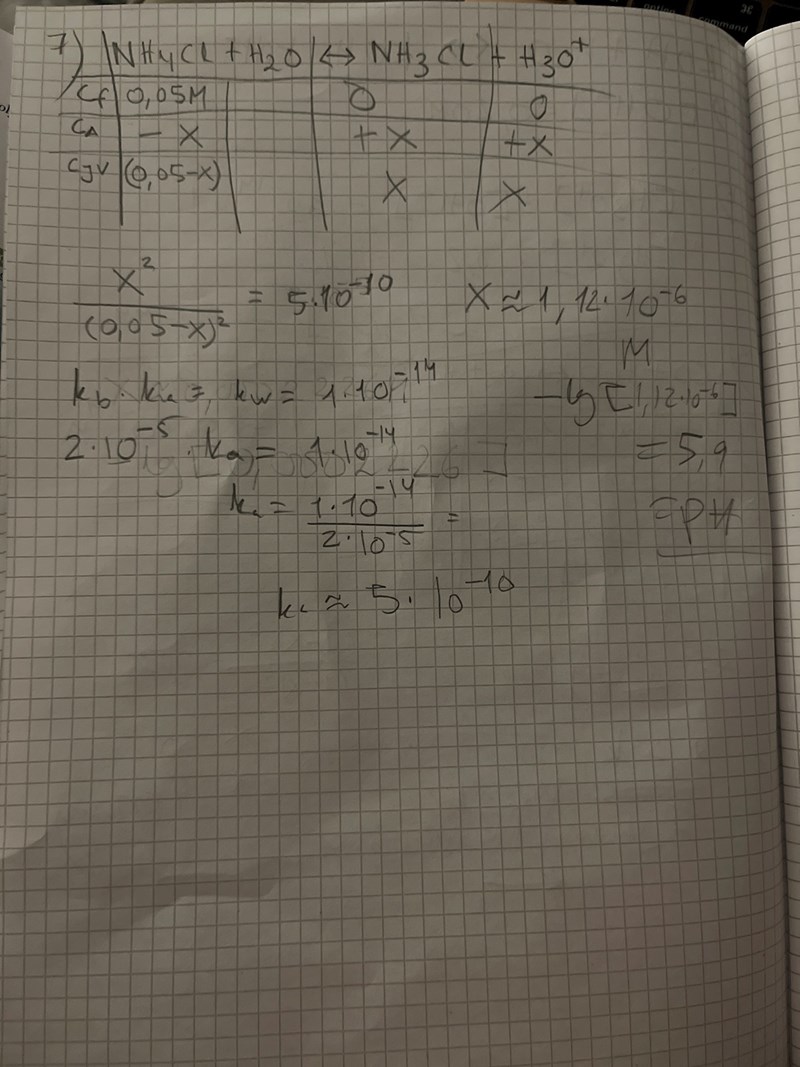 7) NH4Cl + H2O ↔ NH3Cl + H3O+
Cf 0,05M 0 0
CΔ - x +x +x
CJV (0,05-x) x x
x² / (0,05-x)² = 5·10⁻¹⁰ x ≈ 1,12·10⁻⁶ M
kb · ka = kw = 1·10⁻¹⁴ -lg [1,12·10⁻⁶]
2·10⁻⁵ · ka = 1·10⁻¹⁴ = 5,9
ka = 1·10⁻¹⁴ / 2·10⁻⁵ = = pH
ka ≈ 5·10⁻¹⁰
option
command